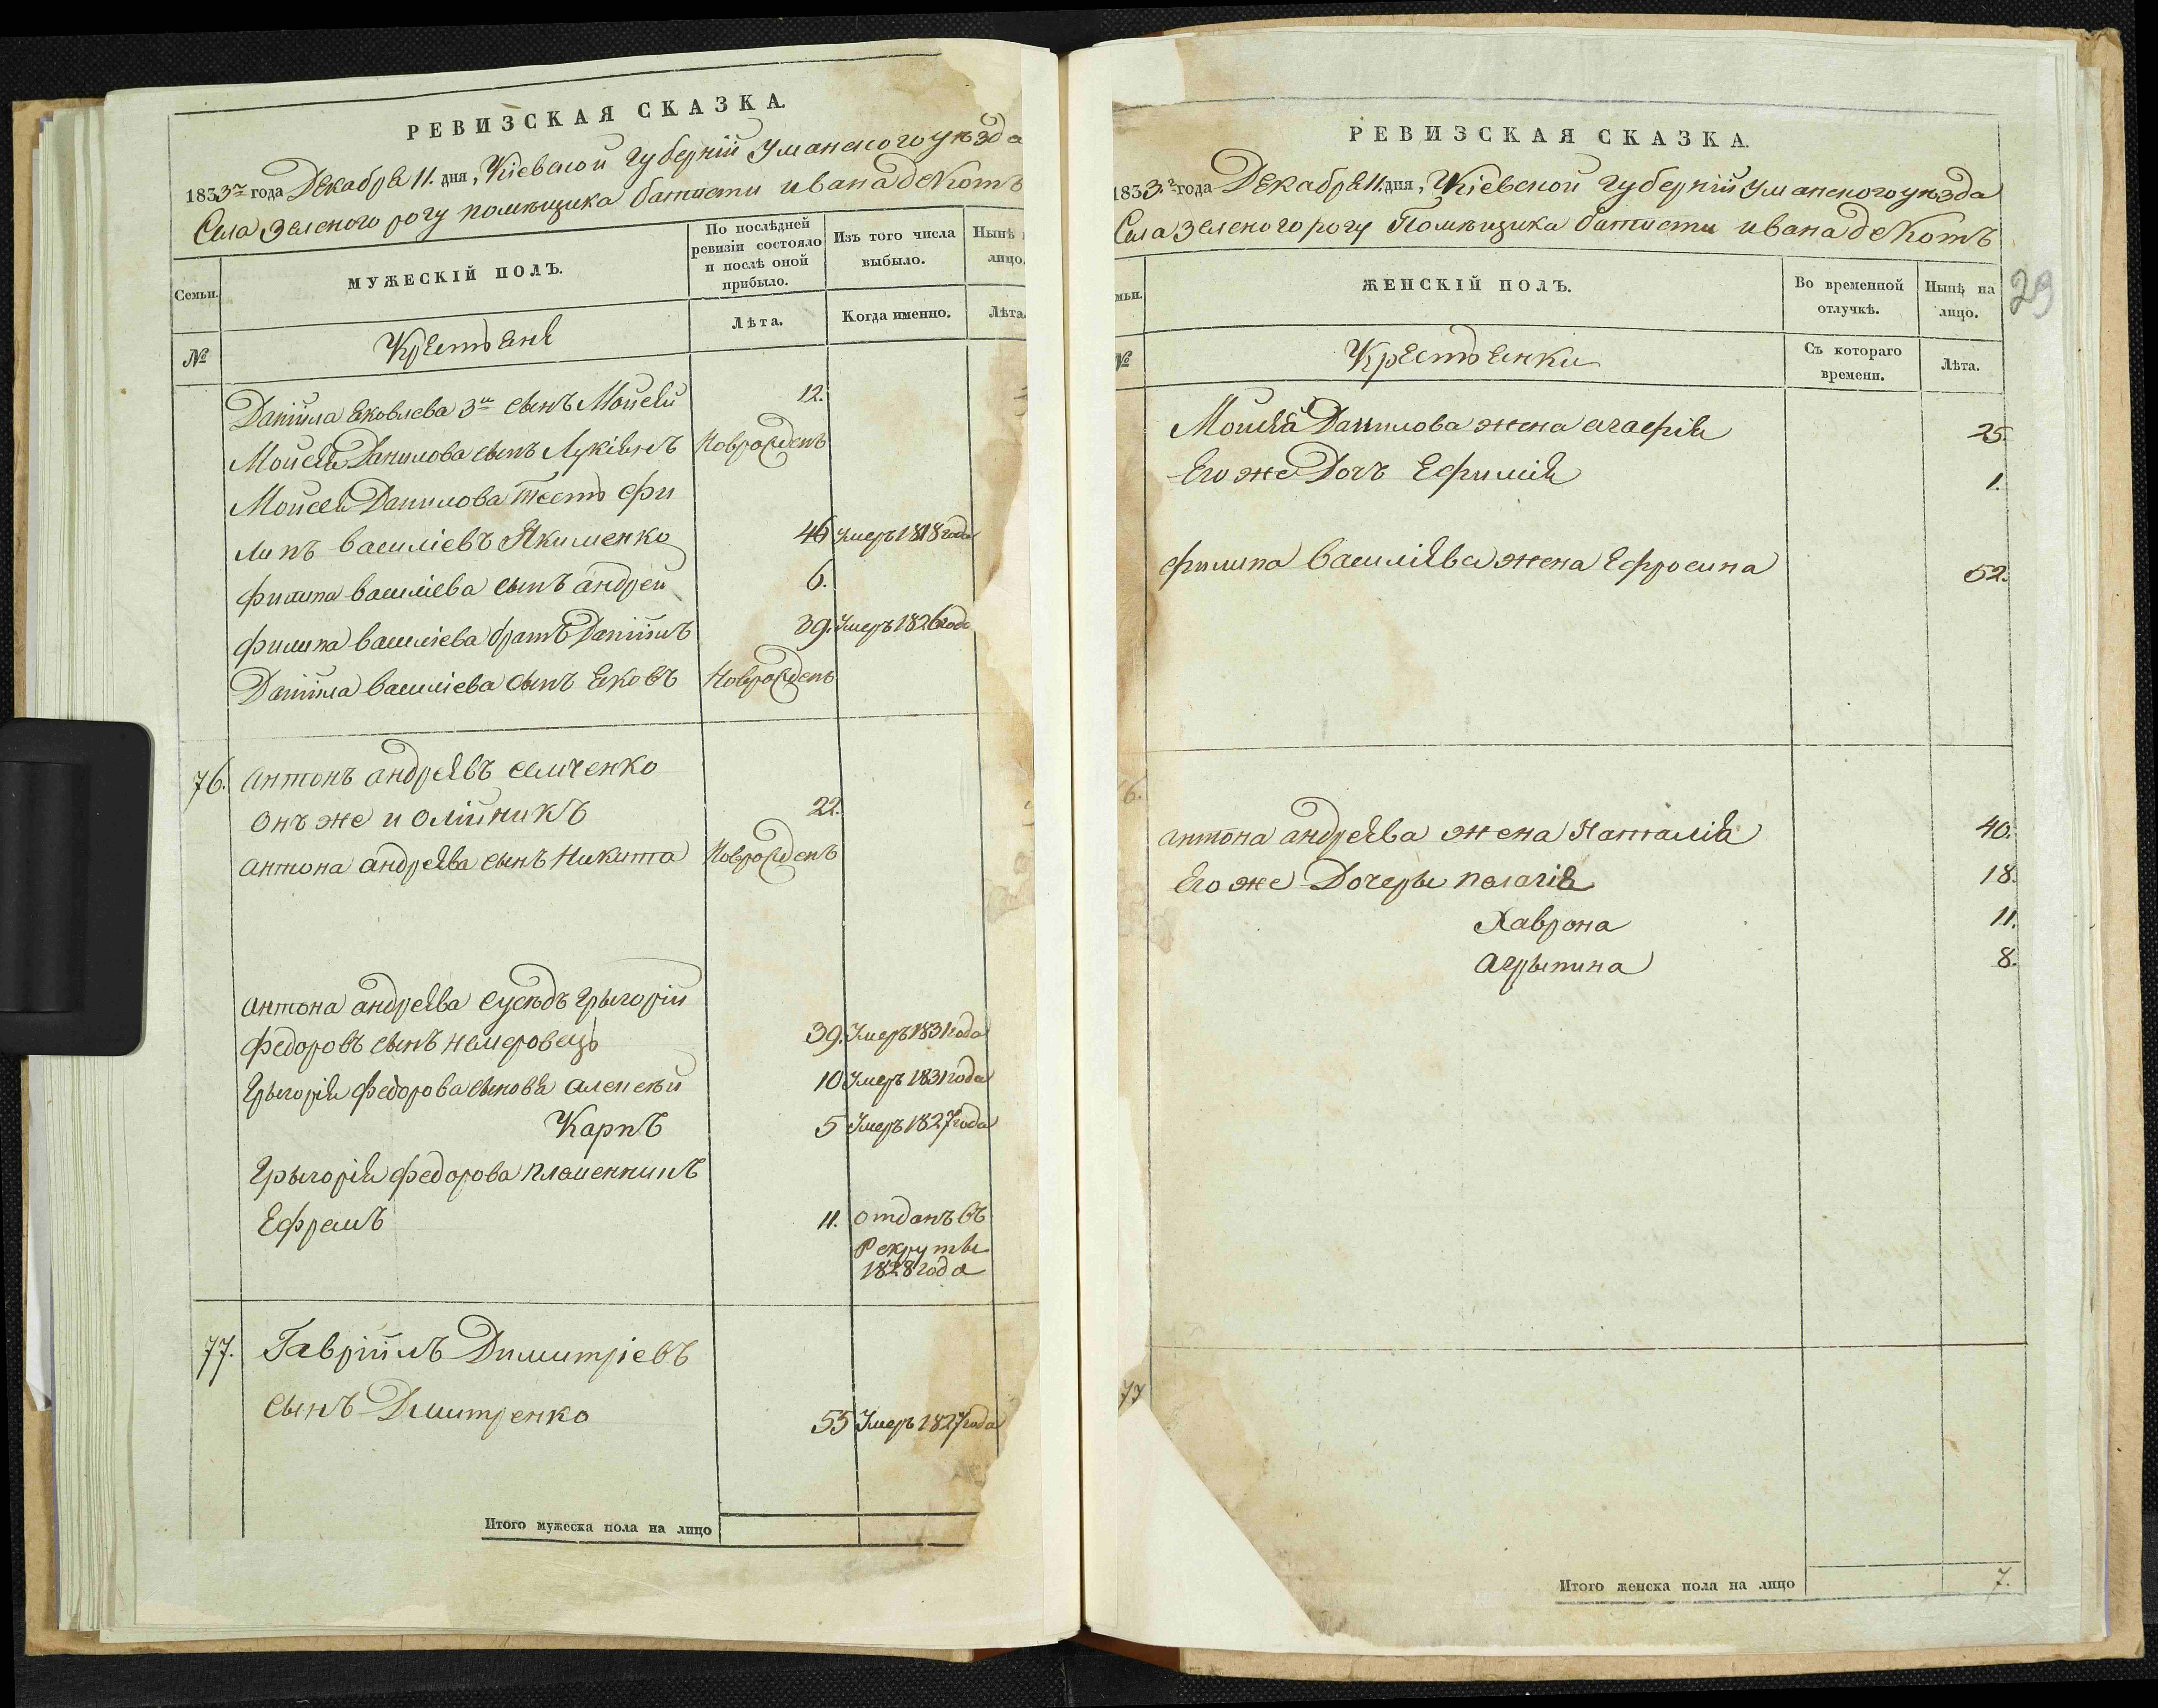 РЕВИЗСКАЯ СКАЗКА.
1833го года Декабря 11. дня, Кіевской губерніи Уманского уѣзда
Села Зеленого рогу помѣщика батисти ивана деКотъ
Семьи.
МУЖЕСКІЙ ПОЛЪ.
По послѣдней ревизіи состояло и послѣ оной прибыло.
Изъ того числа выбыло.
Нынѣ
лицо.
№
Крестьяне
Лѣта.
Когда именно.
Лѣта.
Даніила Яковлева 3й сынъ Моисей 12.
Моисея Данилова сынъ Лукіянъ Новрожденъ
Моисея Данилова тесть Фи
липъ василіевъ Якименко 46 Умеръ 1818 года
филипа василіева сынъ андрей 6.
филипа василіева братъ Даніилъ 39. Умеръ 1826 года
Даніила василіева сынъ Яковъ Новрожденъ
76. Антонъ андреявъ семченко
онъ же и олійникъ 22.
Антона андреява сынъ Никита Новрожденъ
Антона андреява сусѣдъ Грыгорій
федоровъ сынъ немеровецъ 39. Умеръ 1831 года
Грыгорія федорова сыновя алексѣй 10 Умеръ 1831 года
Карпъ 5 Умеръ 1827 года
Грыгорія федорова племенникъ
Ефремъ 11. отданъ въ
Рекруты
1828 года
77. Гавріилъ Димитріевъ
сынъ Дмитренко 55 Умеръ 1827 года
Итого мужеска пола на лицо
РЕВИЗСКАЯ СКАЗКА.
1833.го года Декабря 11. дня, Кіевской губерніи Уманского уѣзда
Села Зеленого рогу Помѣщика батисти ивана деКотъ
29
мьи.
ЖЕНСКІЙ ПОЛЪ.
Во временной отлучкѣ.
Нынѣ на лицо.
№
Крестьянки
Съ котораго времени.
Лѣта.
Моисея Данилова жена агафія 25.
Его же Дочъ Ефимія 1.
филипа василіява жена Ефросина 52.
6.
антона андреява жена Наталія 40.
Его же Дочеры пелагія 18.
Хаврона 11.
Агрыпина 8.
77
Итого женска пола на лицо 7.